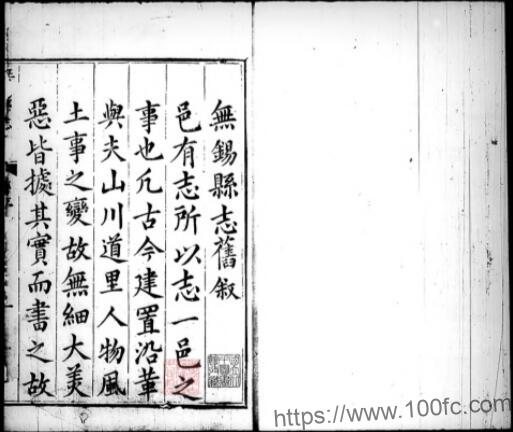 無錫縣志舊敘
邑有志所以志一邑之
事也凡古今建置沿革
與夫山川道里人物風
土事之變故無細大美
惡皆據其實而書之故
https://www.100fc.com